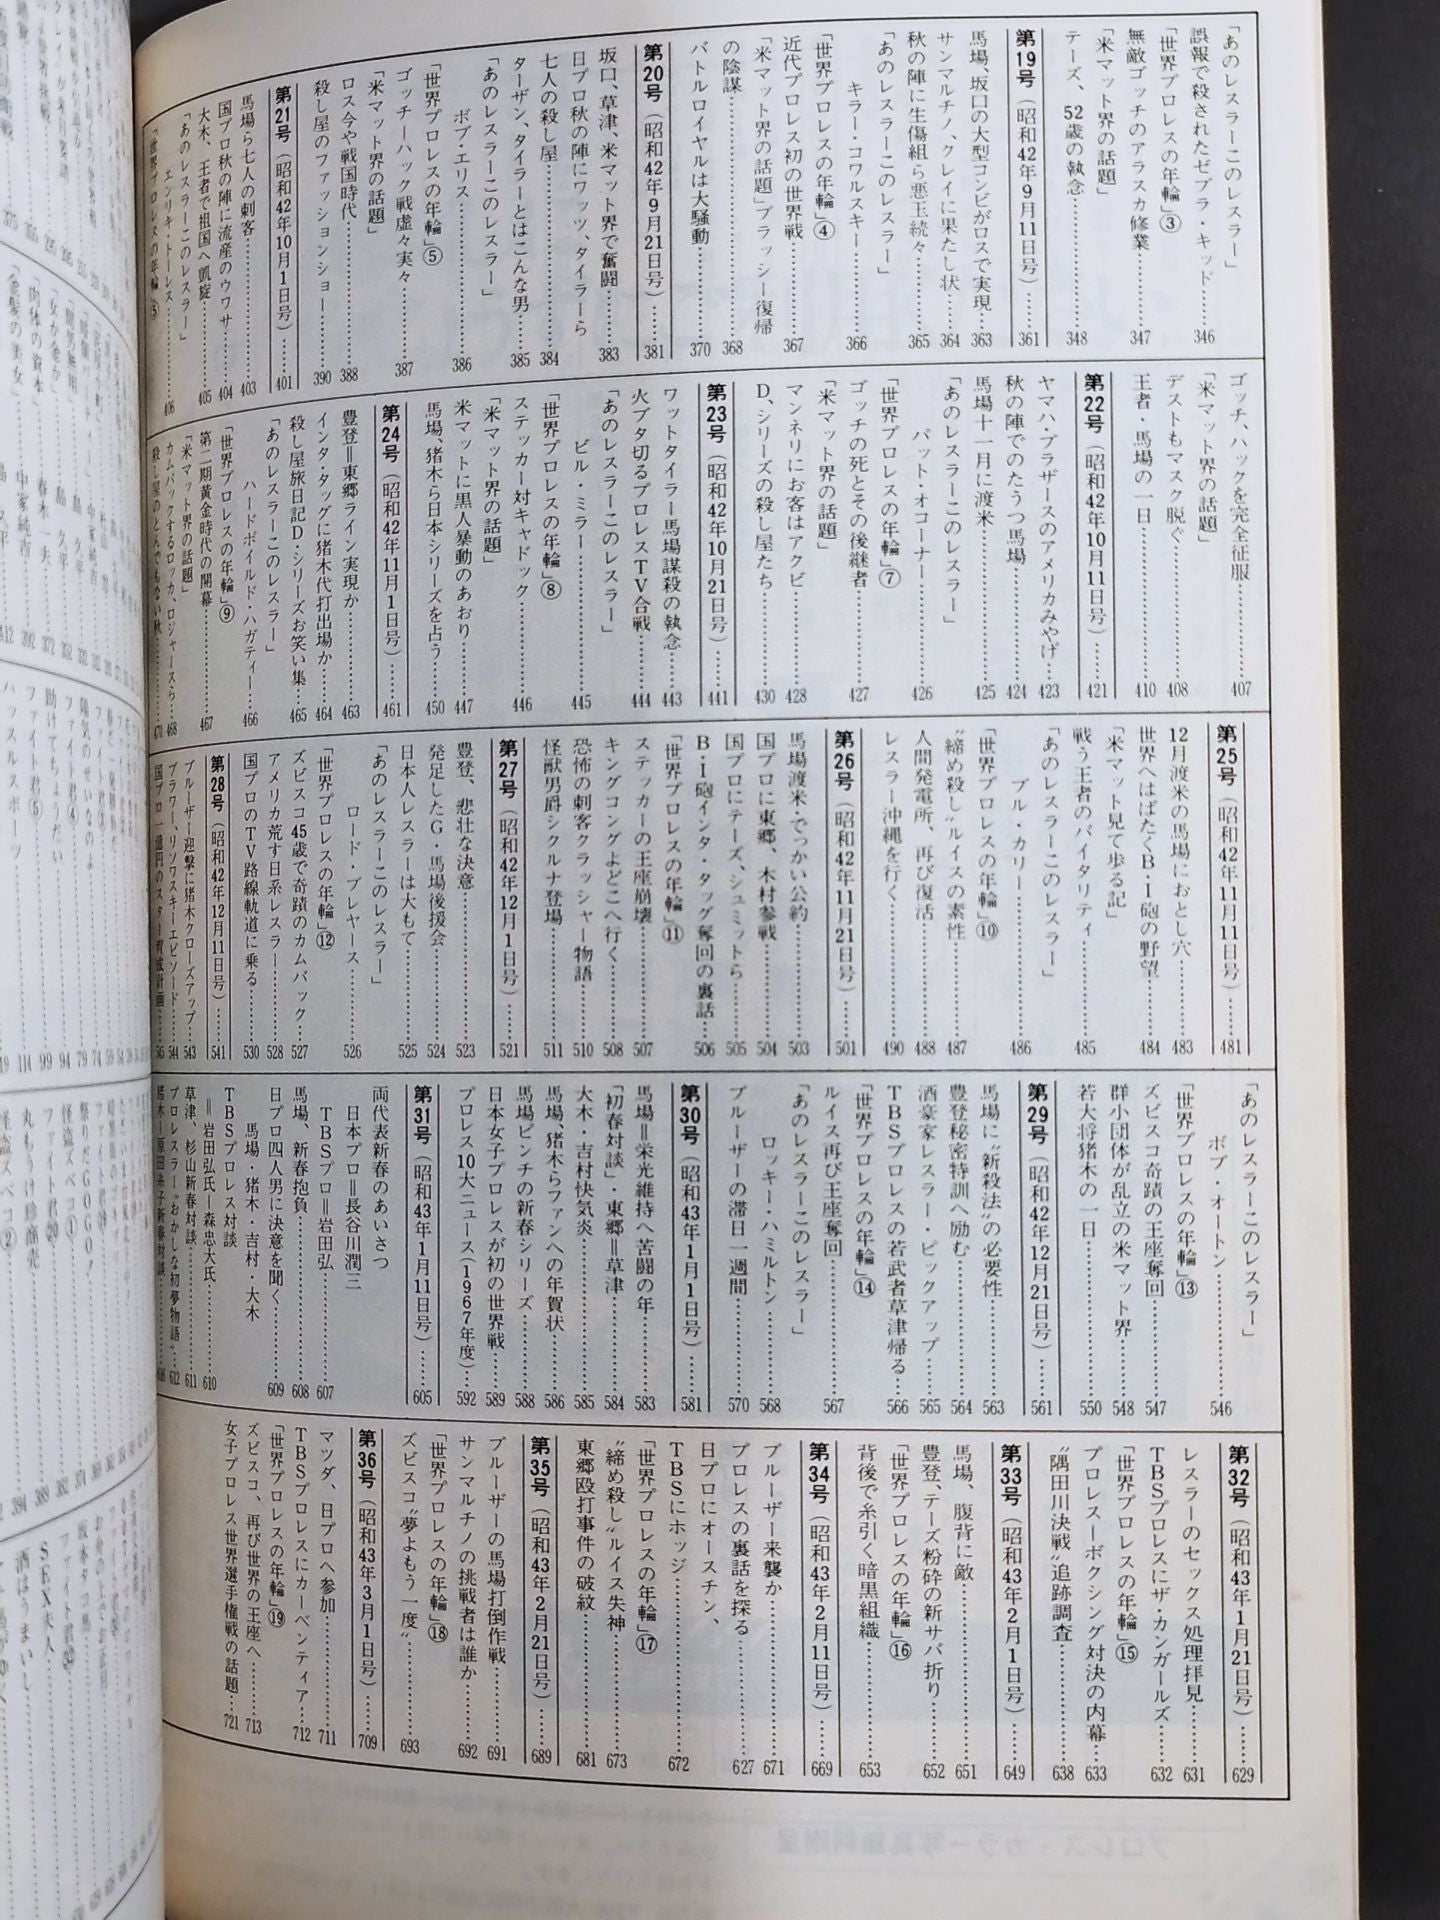 「あのレスラーこのレスラー」
誤報で殺されたゼブラ・キッド……346
「世界プロレスの年輪」③
無敵ゴッチのアラスカ修業……347
「米マット界の話題」
テーズ、52歳の執念……348
第19号（昭和42年9月11日号）……361
馬場、坂口の大型コンビがロスで実現…363
サンマルチノ、クレイに果たし状……364
秋の陣に生傷組ら悪玉続々……365
「あのレスラーこのレスラー」
キラー・コワルスキー……366
「世界プロレスの年輪」④
近代プロレス初の世界戦……367
「米マット界の話題」ブラッシー復帰
の陰謀……368
バトルロイヤルは大騒動……370
第20号（昭和42年9月21日号）……381
坂口、草津、米マット界で奮闘……383
日プロ秋の陣にワッツ、タイラーら
七人の殺し屋……384
ターザン、タイラーとはこんな男……385
「あのレスラーこのレスラー」
ボブ・エリス……386
「世界プロレスの年輪」⑤
ゴッチーハック戦虚々実々……387
「米マット界の話題」
ロス今や戦国時代……388
殺し屋のファッションショー……390
第21号（昭和42年10月1日号）……401
馬場ら七人の刺客……403
国プロ秋の陣に流産のウワサ……404
大木、王者で祖国へ凱旋……405
「あのレスラーこのレスラー」
エンリキ・トーレス……406
「世界プロレスの年輪」
ゴッチ、ハックを完全征服……407
「米マット界の話題」
デストもマスク脱ぐ……408
王者・馬場の一日……410
第22号（昭和42年10月11日号）……421
ヤマハ・ブラザースのアメリカみやげ…423
秋の陣でのたうつ馬場……424
馬場十一月に渡米……425
「あのレスラーこのレスラー」
パット・オコーナー……426
「世界プロレスの年輪」⑦
ゴッチの死とその後継者……427
「米マット界の話題」
マンネリにお客はアクビ……428
D、シリーズの殺し屋たち……430
第23号（昭和42年10月21日号）……441
ワットタイラー馬場謀殺の執念……443
火ブタ切るプロレスTV合戦……444
「あのレスラーこのレスラー」
ビル・ミラー……445
「世界プロレスの年輪」⑧
ステッカー対キャドック……446
「米マット界の話題」
米マットに黒人暴動のあおり……447
馬場、猪木ら日本シリーズを占う……450
第24号（昭和42年11月1日号）……461
豊登＝東郷ライン実現か……463
インタ・タッグに猪木代打出場か……464
殺し屋旅日記D・シリーズお笑い集…465
「あのレスラーこのレスラー」
ハードボイルド・ハガティー……466
「世界プロレスの年輪」⑨
第二期黄金時代の開幕……467
「米マット界の話題」
カムバックするロッカ、ロジャースら…468
殺し屋のとんでもない秋……470
第25号（昭和42年11月11日号）……481
12月渡米の馬場におとし穴……483
世界へはばたくB・I砲の野望……484
「米マット見て歩る記」
戦う王者のバイタリティ……485
「あのレスラーこのレスラー」
ブル・カリー……486
「世界プロレスの年輪」⑩
〝締め殺し〟ルイスの素性……487
人間発電所、再び復活……488
レスラー沖縄を行く……490
第26号（昭和42年11月21日号）……501
馬場渡米・でっかい公約……503
国プロに東郷、木村参戦……504
国プロにテーズ、シュミットら……505
B・I砲インタ・タッグ奪回の裏話…506
「世界プロレスの年輪」⑪
ステッカーの王座崩壊……507
キングコングよどこへ行く……508
恐怖の刺客クラッシャー物語……510
怪獣男爵シクルナ登場……511
第27号（昭和42年12月1日号）……521
豊登、悲壮な決意……523
発足したG・馬場後援会……524
日本人レスラーは大もて……525
「あのレスラーこのレスラー」
ロード・ブレヤース……526
「世界プロレスの年輪」⑫
ズビスコ45歳で奇蹟のカムバック…527
アメリカ荒す日系レスラー……528
国プロのTV路線軌道に乗る……530
第28号（昭和42年12月11日号）……541
ブルーザー迎撃に猪木クローズアップ…543
ブラワー、リソワスキーエピソード……544
国プロ一億円のスター育成計画……545
「あのレスラーこのレスラー」
ボブ・オートン……546
「世界プロレスの年輪」⑬
ズビスコ奇蹟の王座奪回……547
群小団体が乱立の米マット界……548
若大将猪木の一日……550
第29号（昭和42年12月21日号）……561
馬場に〝新殺法〟の必要性……563
豊登秘密特訓へ励む……564
酒豪家レスラー・ピックアップ……565
TBSプロレスの若武者草津帰る……566
「世界プロレスの年輪」⑭
ルイス再び王座奪回……567
「あのレスラーこのレスラー」
ロッキー・ハミルトン……568
ブルーザーの滞日一週間……570
第30号（昭和43年1月1日号）……581
馬場＝栄光維持へ苦闘の年……583
「初春対談」・東郷＝草津……584
大木・吉村快気炎……585
馬場、猪木らファンへの年賀状……586
馬場ピンチの新春シリーズ……588
日本女子プロレスが初の世界戦……589
プロレス10大ニュース（1967年度）…592
第31号（昭和43年1月11日号）……605
両代表新春のあいさつ
日本プロ＝長谷川潤三
TBSプロ＝岩田弘……607
馬場、新春抱負……608
日プロ四人男に決意を聞く……609
馬場・猪木・吉村・大木
TBSプロレス対談
＝岩田弘氏ー森忠大氏……610
草津、杉山新春対談……611
プロレスラー〝おかしな初夢物語〟…612
猪木ー原田糸子新春対談
第32号（昭和43年1月21日号）……629
レスラーのセックス処理拝見……631
TBSプロレスにザ・カンガルーズ…632
「世界プロレスの年輪」⑮
プロレスーボクシング対決の内幕……633
〝隅田川決戦〟追跡調査……638
第33号（昭和43年2月1日号）……649
馬場、腹背に敵……651
豊登、テーズ粉砕の新サバ折り……652
「世界プロレスの年輪」⑯
背後で糸引く暗黒組織……653
第34号（昭和43年2月11日号）……669
ブルーザー来襲か……671
プロレスの裏話を探る……627
日プロにオースチン、
TBSにホッジ……672
「世界プロレスの年輪」⑰
〝締め殺し〟ルイス失神……673
東郷殴打事件の破紋……681
第35号（昭和43年2月21日号）……689
ブルーザーの馬場打倒作戦……691
サンマルチノの挑戦者は誰か……692
「世界プロレスの年輪」⑱
ズビスコ〝夢よもう一度〟……693
第36号（昭和43年3月1日号）……709
マツダ、日プロへ参加……711
TBSプロレスにカーペンティア……712
「世界プロレスの年輪」⑲
ズビスコ、再び世界の王座へ……713
女子プロレス世界選手権戦の話題……721